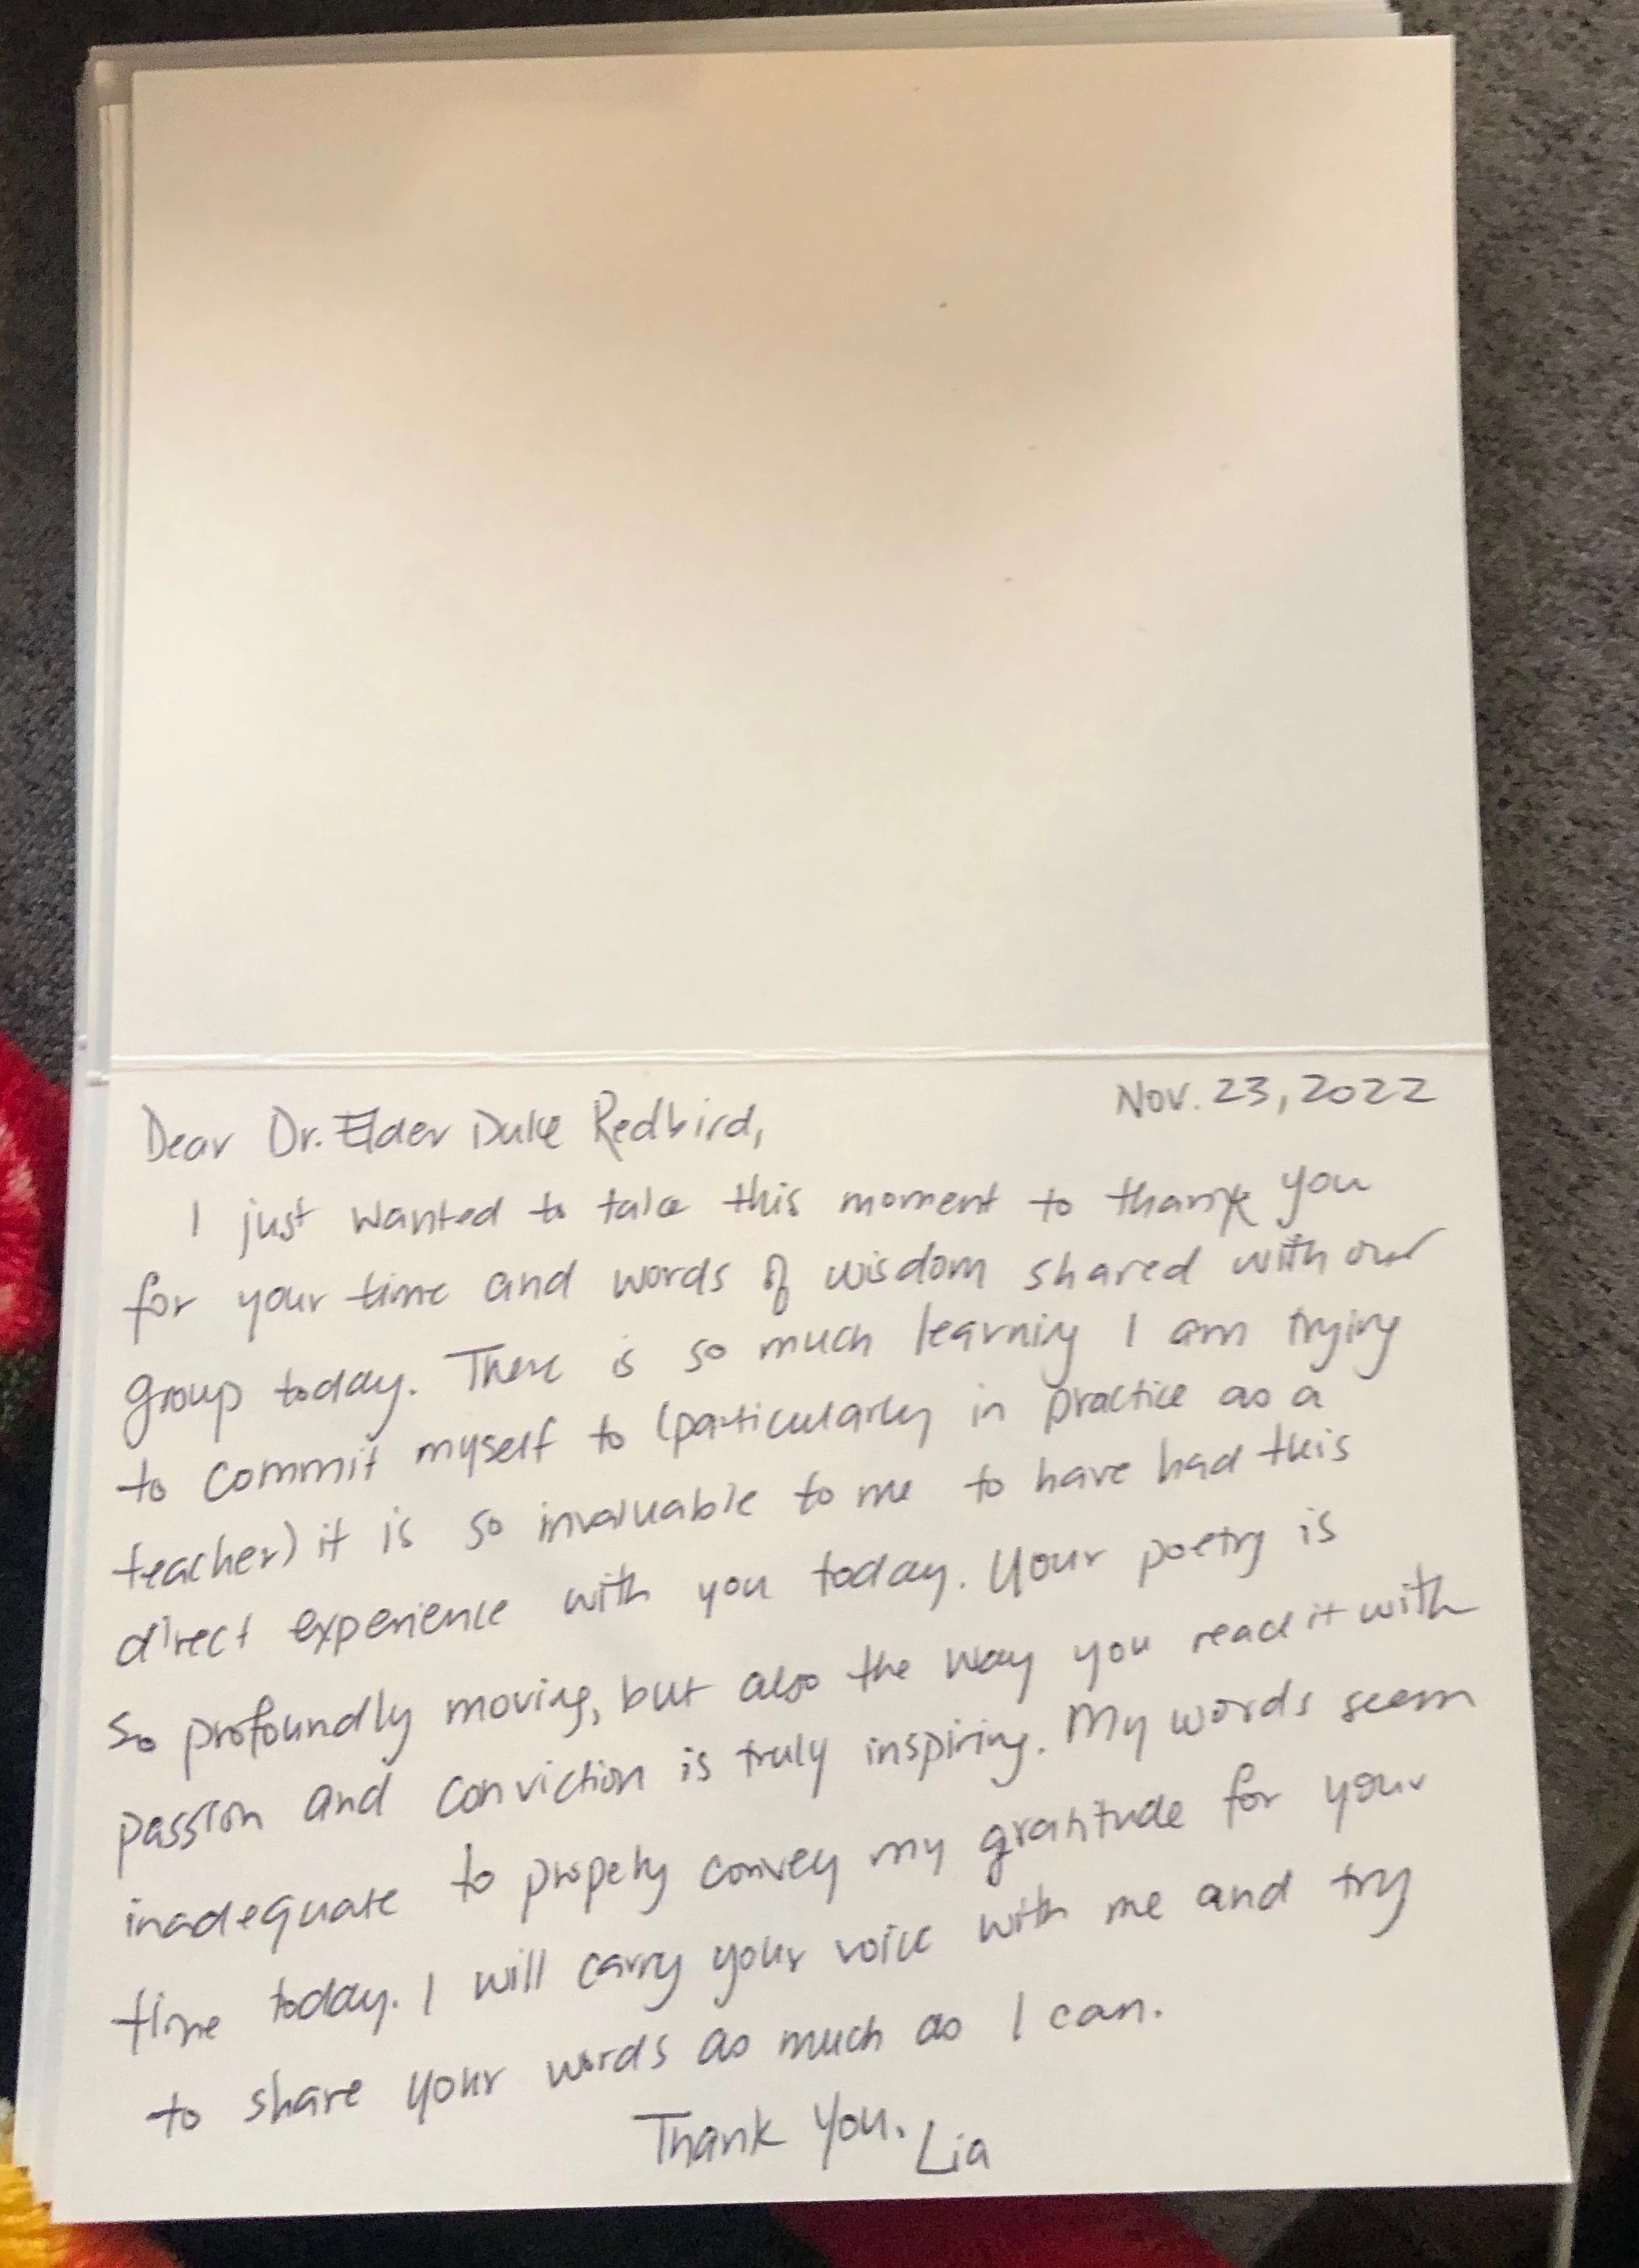 Nov. 23, 2022
Dear Dr. Elder Duke Redbird,
I just wanted to take this moment to thank you
for your time and words of wisdom shared with our
group today. There is so much learning I am trying
to commit myself to (particularly in practice as a
teacher) it is so invaluable to me to have had this
direct experience with you today. Your poetry is
so profoundly moving, but also the way you read it with
passion and conviction is truly inspiring. My words seem
inadequate to propely convey my gratitude for your
time today. I will carry your voice with me and try
to share your words as much as I can.
Thank you. Lia